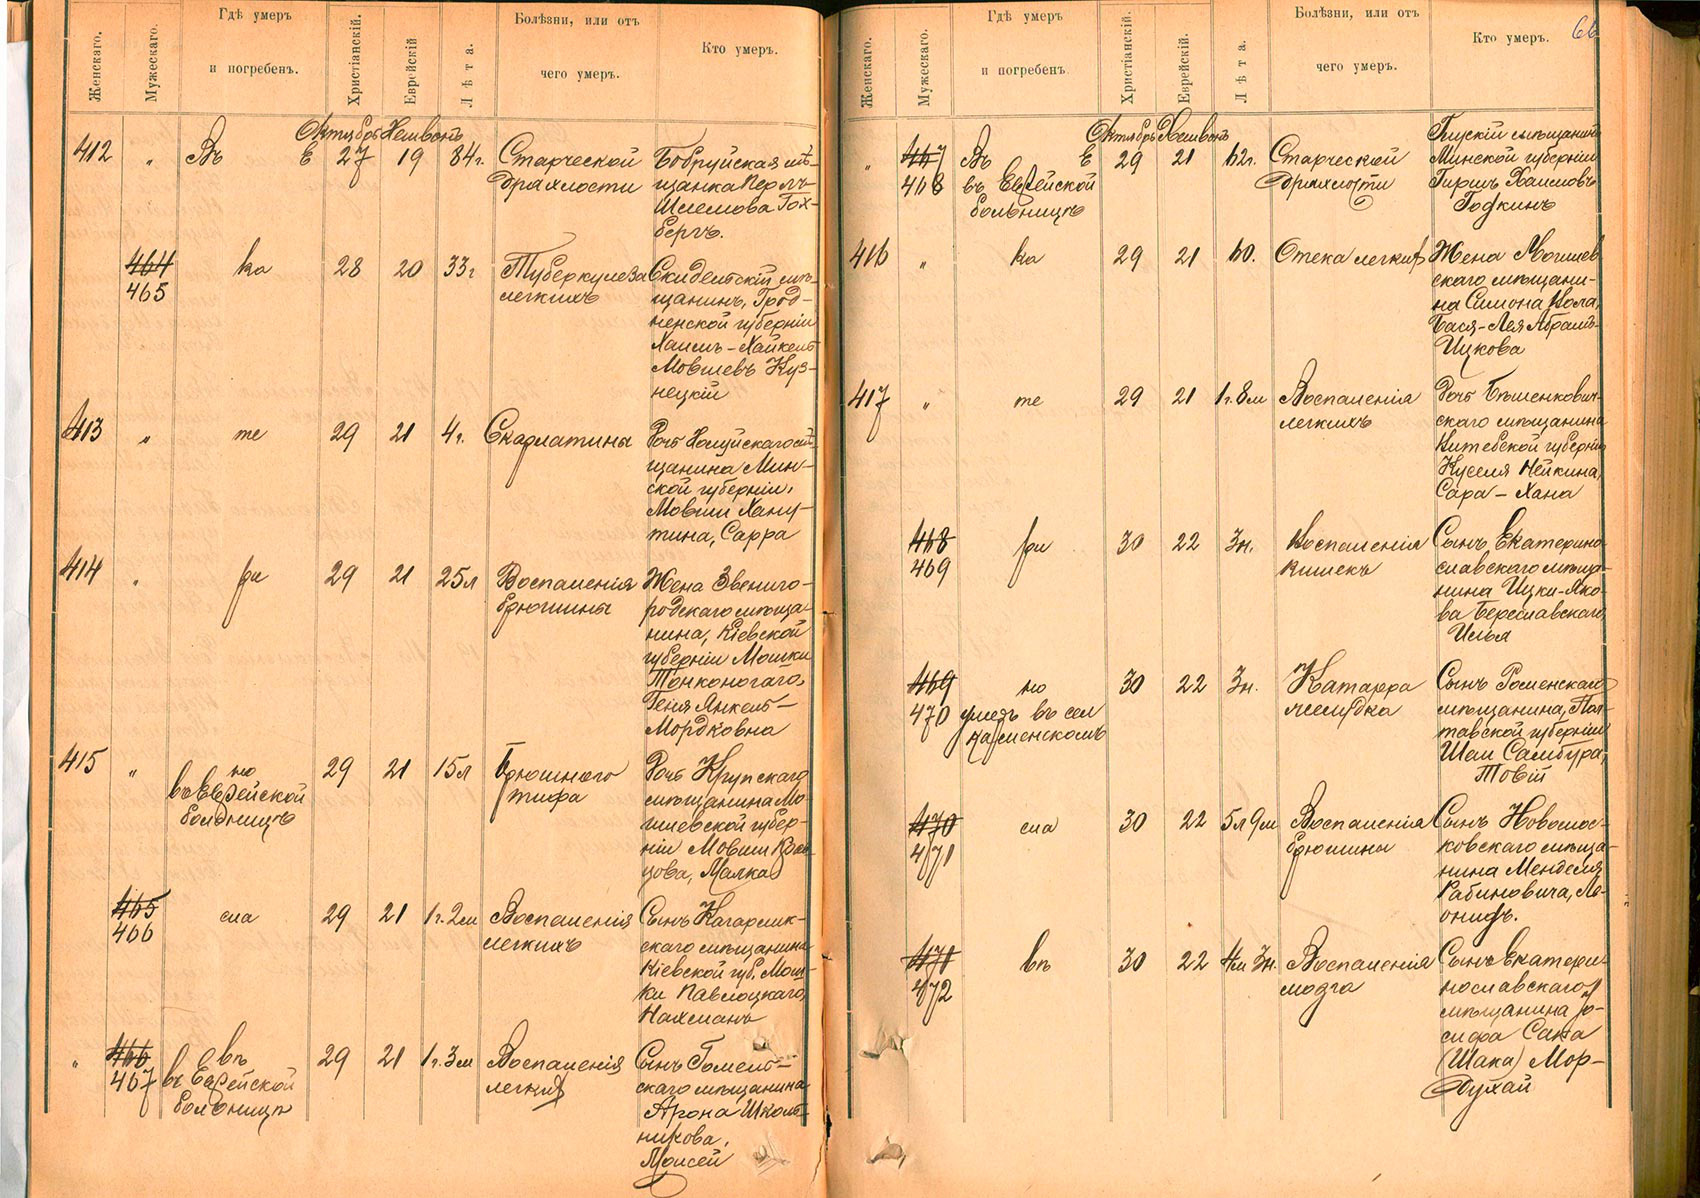 Женскаго.
Мужескаго.
Гдѣ умеръ
и погребенъ.
Христіанскій.
Еврейскій
Лѣта.
Болѣзни, или отъ
чего умеръ.
Кто умеръ.
Октябрь Хешвонъ
412 „ Въ Е 27 19 84г. Старческой
дряхлости
Бобруйская мѣ-
щанка Перлъ
Шлемова Гох-
бергъ.
464
465
ка 28 20 33г Туберкулеза
легкихъ
Скидельскій мѣ-
щанинъ, Грод-
ненской губерніи
Хаимъ-Хайкель
Мовшевъ Куз-
нецкій
413 „ те 29 21 4г. Скарлатины
Дочь мѣ-
щанина Мин-
ской губерніи,
Мовши Хану-
тина, Сарра
414 „ ри 29 21 25л Воспаленія
брюшины
Жена Звениго-
родскаго мѣща-
нина, Кіевской
губерніи Мошки
Тонконогаго,
Геня Янкель-
Мордковна
415 „ но
въ Еврейской
больницѣ
29 21 15л Брюшного
тифа
Дочь Крупскаго
мѣщанина Мо-
гилевской губер-
ніи Мовши
Малка
465
466
сла 29 21 1г. 2м Воспаленія
легкихъ
Сынъ Кагарлик-
скаго мѣщанина
Кіевской губ. Мош-
ки Павлоцкаго,
Нахманъ
„ 466
467
въ Еврейской
больницѣ
29 21 1г. 3м Воспаленія
легкихъ
Сынъ Гомель-
скаго мѣщанина
Арона Школь-
никова,
Моисей
66
Женскаго.
Мужескаго.
Гдѣ умеръ
и погребенъ.
Христіанскій.
Еврейскій.
Лѣта.
Болѣзни, или отъ
чего умеръ.
Кто умеръ.
Октябрь Хешвонъ
„ 467
468
Въ Е
въ Еврейской
больницѣ
29 21 62г. Старческой
дряхлости
Глускій мѣщанинъ
Минской губерніи
Гиршъ Хаимовъ
Годкинъ
416 „ ка 29 21 60. Отека легкихъ
Жена Могилев
скаго мѣщани-
на Симона
Бася-Лея Абрамъ-
Ицкова
417 „ те 29 21 1г. 8м Воспаленія
легкихъ
Дочь Бѣшенкович-
скаго мѣщанина
Витебской губерніи
Куселя Нейкина,
Сара-Хана
468
469
ри 30 22 3н. Воспаленія
кишекъ
Сынъ Екатерино-
славскаго мѣща-
нина Ицки-Яко-
ва Береславскаго
Илья
469
470
но
умеръ въ сел
Каменскомъ
30 22 3н. Катарра
желудка
Сынъ Роменскаго
мѣщанина, Пол-
тавской губерніи
Шаи Самбура,
Товій
470
471
сла 30 22 5л 9м Воспаленія
брюшины
Сынъ Новомос-
ковскаго мѣща-
нина Менделя
Рабиновича, Ле-
онидъ.
471
472
вѣ 30 22 4м 3н. Воспаленія
мозга
Сынъ Екатери-
нославскаго
мѣщанина Іо-
сифа Сака
(Шака) Мор-
духай